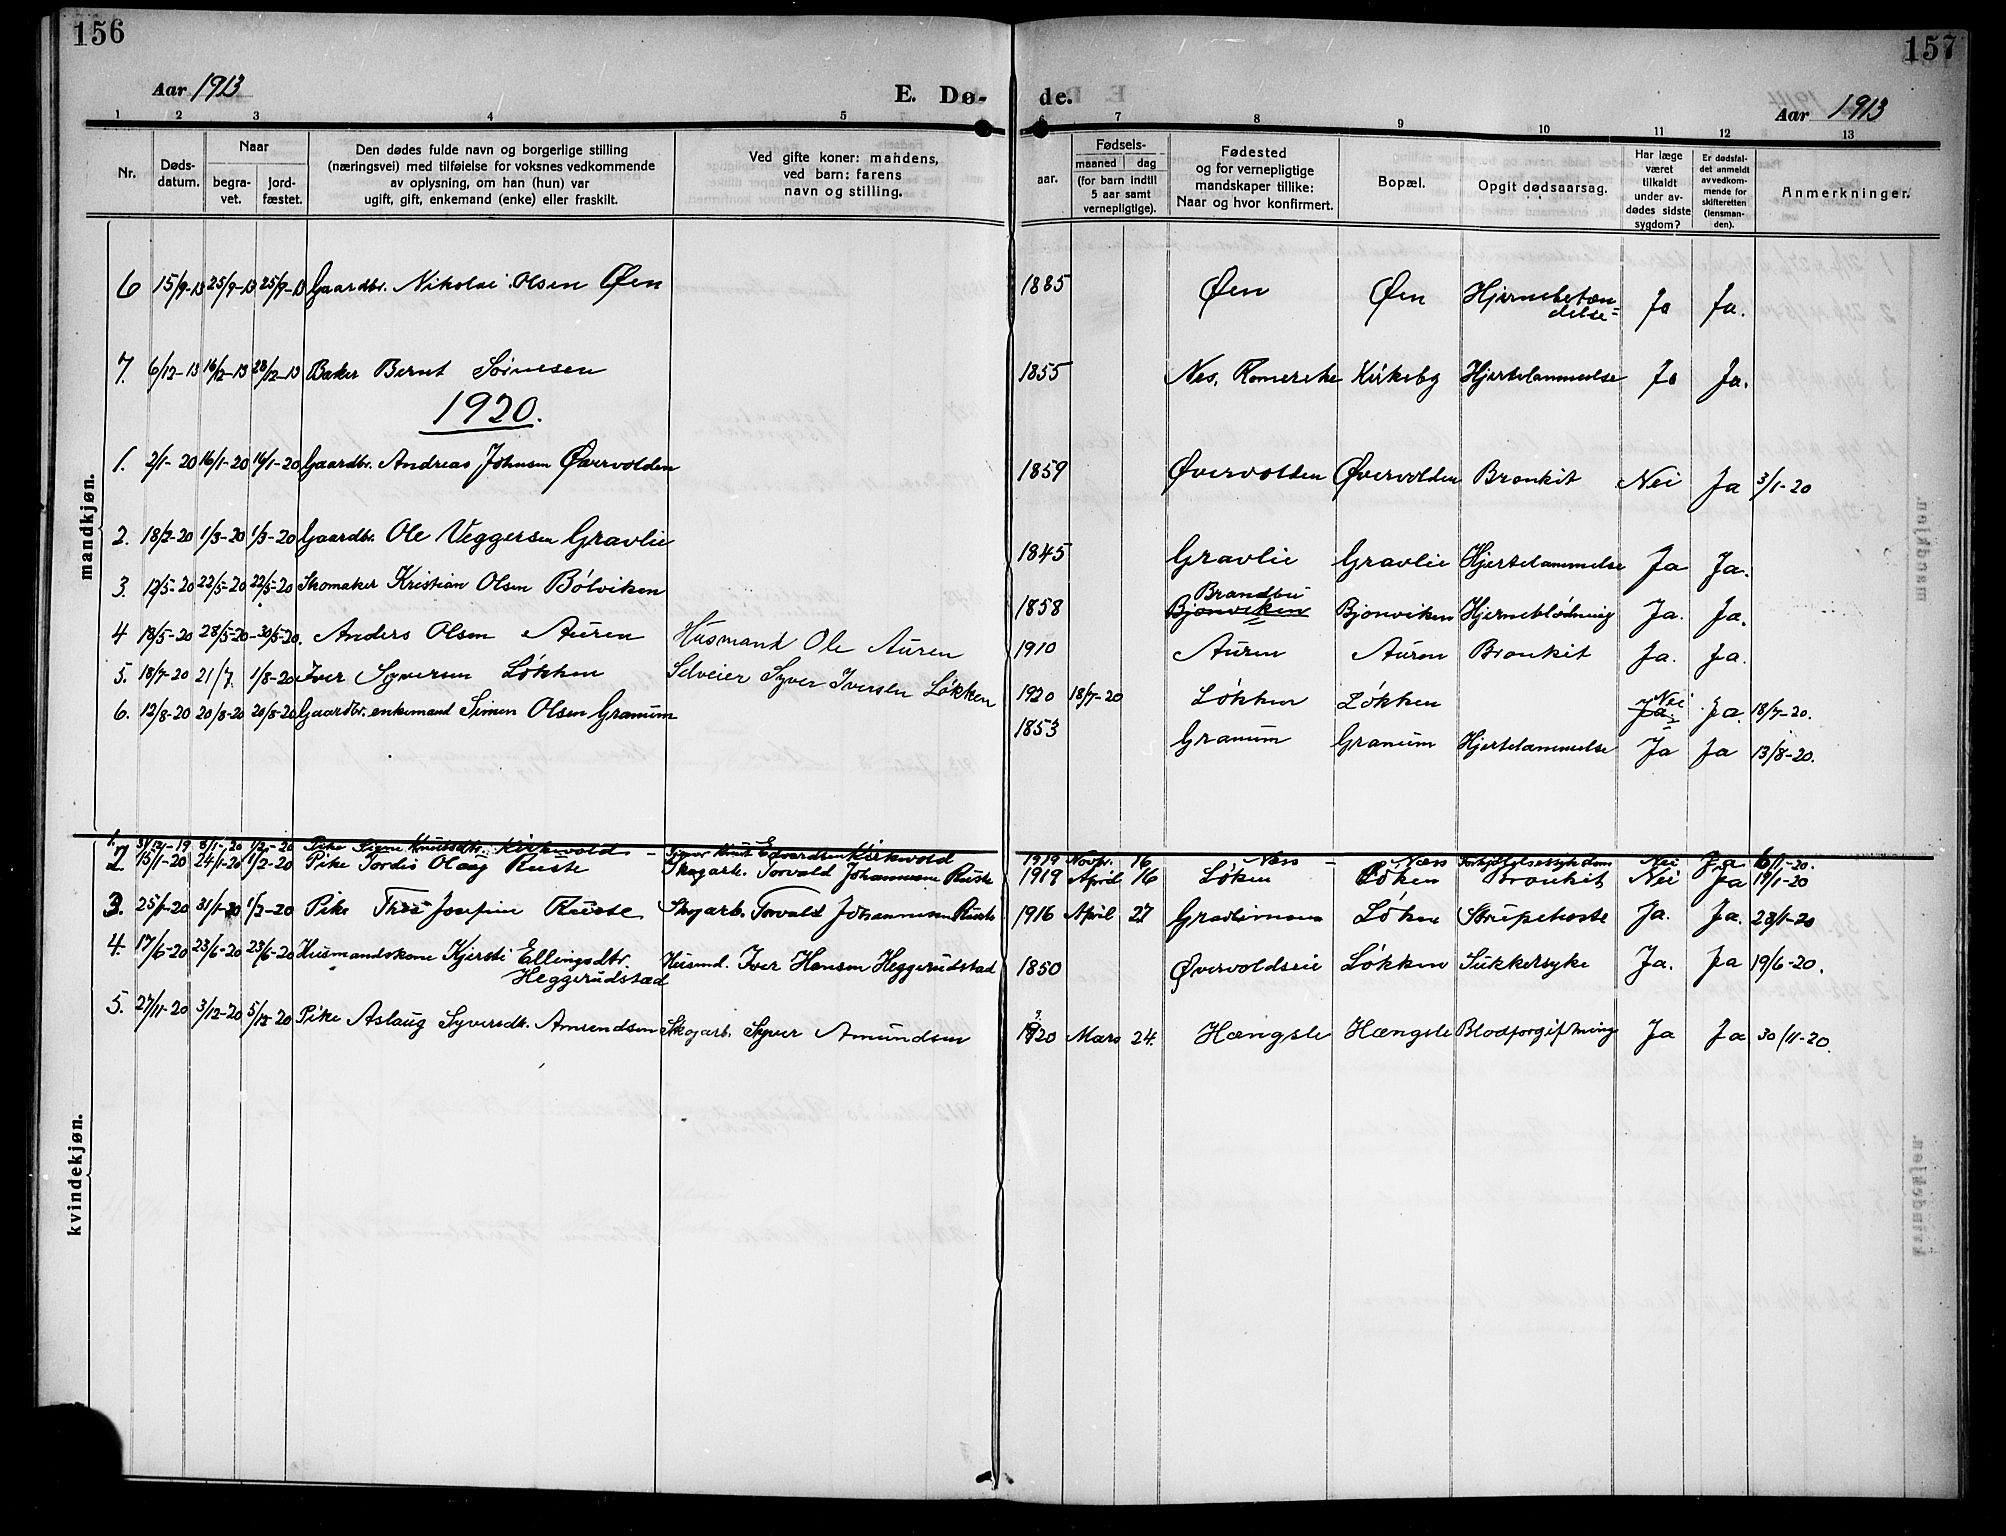 156
157
Aar 1913
E. Dø-
de.
Aar 1913
1 2 3 4 5 6 7 8 9 10 11 12 13
Nr.
Døds-
datum.
Naar
begra-
vet.
jord-
fæstet.
Den dødes fulde navn og borgerlige stilling
(næringsvei) med tilføielse for voksnes vedkommende
av oplysning, om han (hun) var
ugift, gift, enkemand (enke) eller fraskilt.
Ved gifte koner: mandens,
ved barn: farens
navn og stilling.
aar.
Fødsels-
maaned dag
(for barn indtil
5 aar samt
vernepligtige).
Fødested
og for vernepligtige
mandskaper tillike:
Naar og hvor konfirmert.
Bopæl.
Opgit dødsaarsag.
Har læge
været
tilkaldt
under av-
dødes sidste
sygdom?
Er dødsfal-
det anmeldt
av vedkom-
mende for
skifteretten
(lensman-
den).
Anmerkninger.
mandkjøn.
6 15/9-13 25/9-13 25/9-13 Gaardbr. Nikolai Olsen Øen 1885 Øen Øen Hjernebetæn-
delse Ja Ja.
7. 6/12-13 16/12-13 28/12-13 Baker Bernt Sørnesen 1855 Nes, Romerike Kirkeby Hjertelammelse Ja Ja.
1920.
1. 2/1-20 16/1-20 16/1-20 Gaardbr. Andreas Johnsen Øvervolden 1859 Øvervolden Øvervolden Bronkit Nei Ja 3/1-20
2. 18/2-20 1/3-20 1/3-20 Gaardbr. Ole Veggersen Gravlie 1845 Gravlie Gravlie Hjertelammelse Ja Ja.
3. 12/5-20 22/5-20 22/5-20 Skomaker Kristian Olsen Bölviken 1858 Brandbu
Bjonviken Bjonviken Hjerneblødning Ja. Ja.
4 18/5-20 28/5-20 30/5-20. Anders Olsen Auren Husmand Ole Auren 1910 Auren Auren Bronkit Ja. Ja.
5. 18/7-20 21/7. 1/8-20 Iver Syversen Løkken Selveier Syver Iversen Løkken 1920 18/7-20 Løkken Løkken Nei
Ja Ja. 18/7-20.
6. 12/8-20 20/8-20 20/8-20 Gaardbr. enkemand Simen Olsen Granum 1853 Granum Granum Hjertelammelse Ja Ja 13/8-20.
kvindekjøn.
1. 31/12-19 8/1-20 1/2-20 Pike Signe Knutsdtr. Kirkevold Knut Edvardsen Kirkevold 1919 Novbr. 16 Næs Næs Nei Ja 6/1-20.
2 15/1-20 24/1-20 1/2-20 Pike Tordis Olaug Ruste Skogarb. Torvald Johannesen Ruste 1919 April 16 Løken Løken Bronkit Nei Ja 17/1-20
3. 25/1-20 31/1-20 1/2-20 Pike Thea Josefine Ruste Skogarb. Torvald Johannesen Ruste 1916 April 27 Løken Strupehoste Ja. Ja. 28/1-20
4. 17/6-20 23/6-20 23/6-20 Husmandskone Kjersti Ellingsdtr.
Heggerudstad Husmd. Iver Hansen Heggerudstad 1850 Øvervoldseie Løkken Sukkersyke Ja. Ja 19/6-20.
5. 27/11-20 3/12-20 5/12-20 Pike Aslaug Syversdtr. Amundsen Skogarb. Syver Amundsen 1920 Mars 24. Hængsle Hængsle Blodforgiftning Ja Ja 30/11-20.